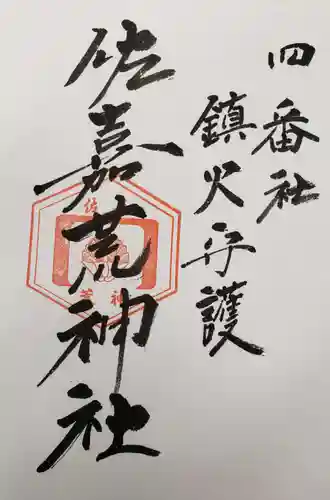 四番社
鎮火守護
佐嘉荒神社